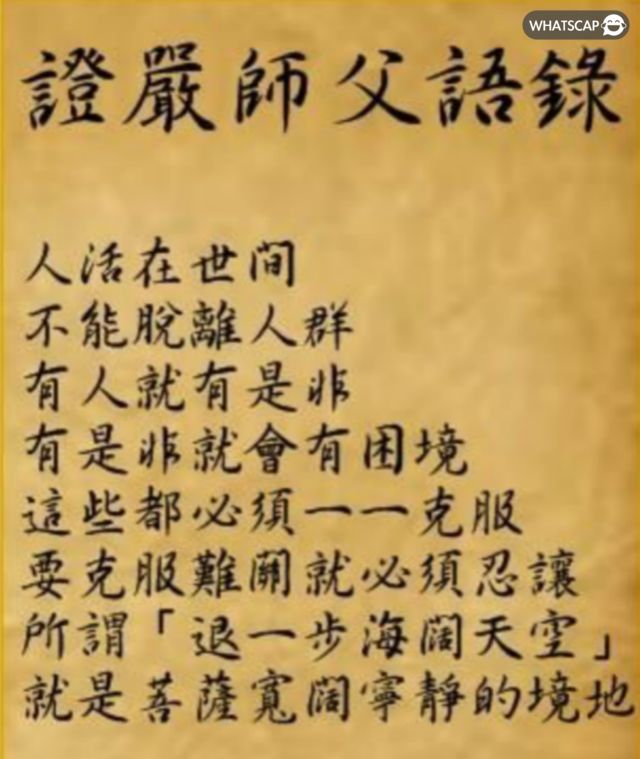 WHATSCAP
證嚴師父語錄
人活在世間
不能脫離人群
有人就有是非
有是非就會有困境
這些都必須一一克服
要克服難關就必須忍讓
所謂「退一步海闊天空」
就是菩薩寬闊寧靜的境地